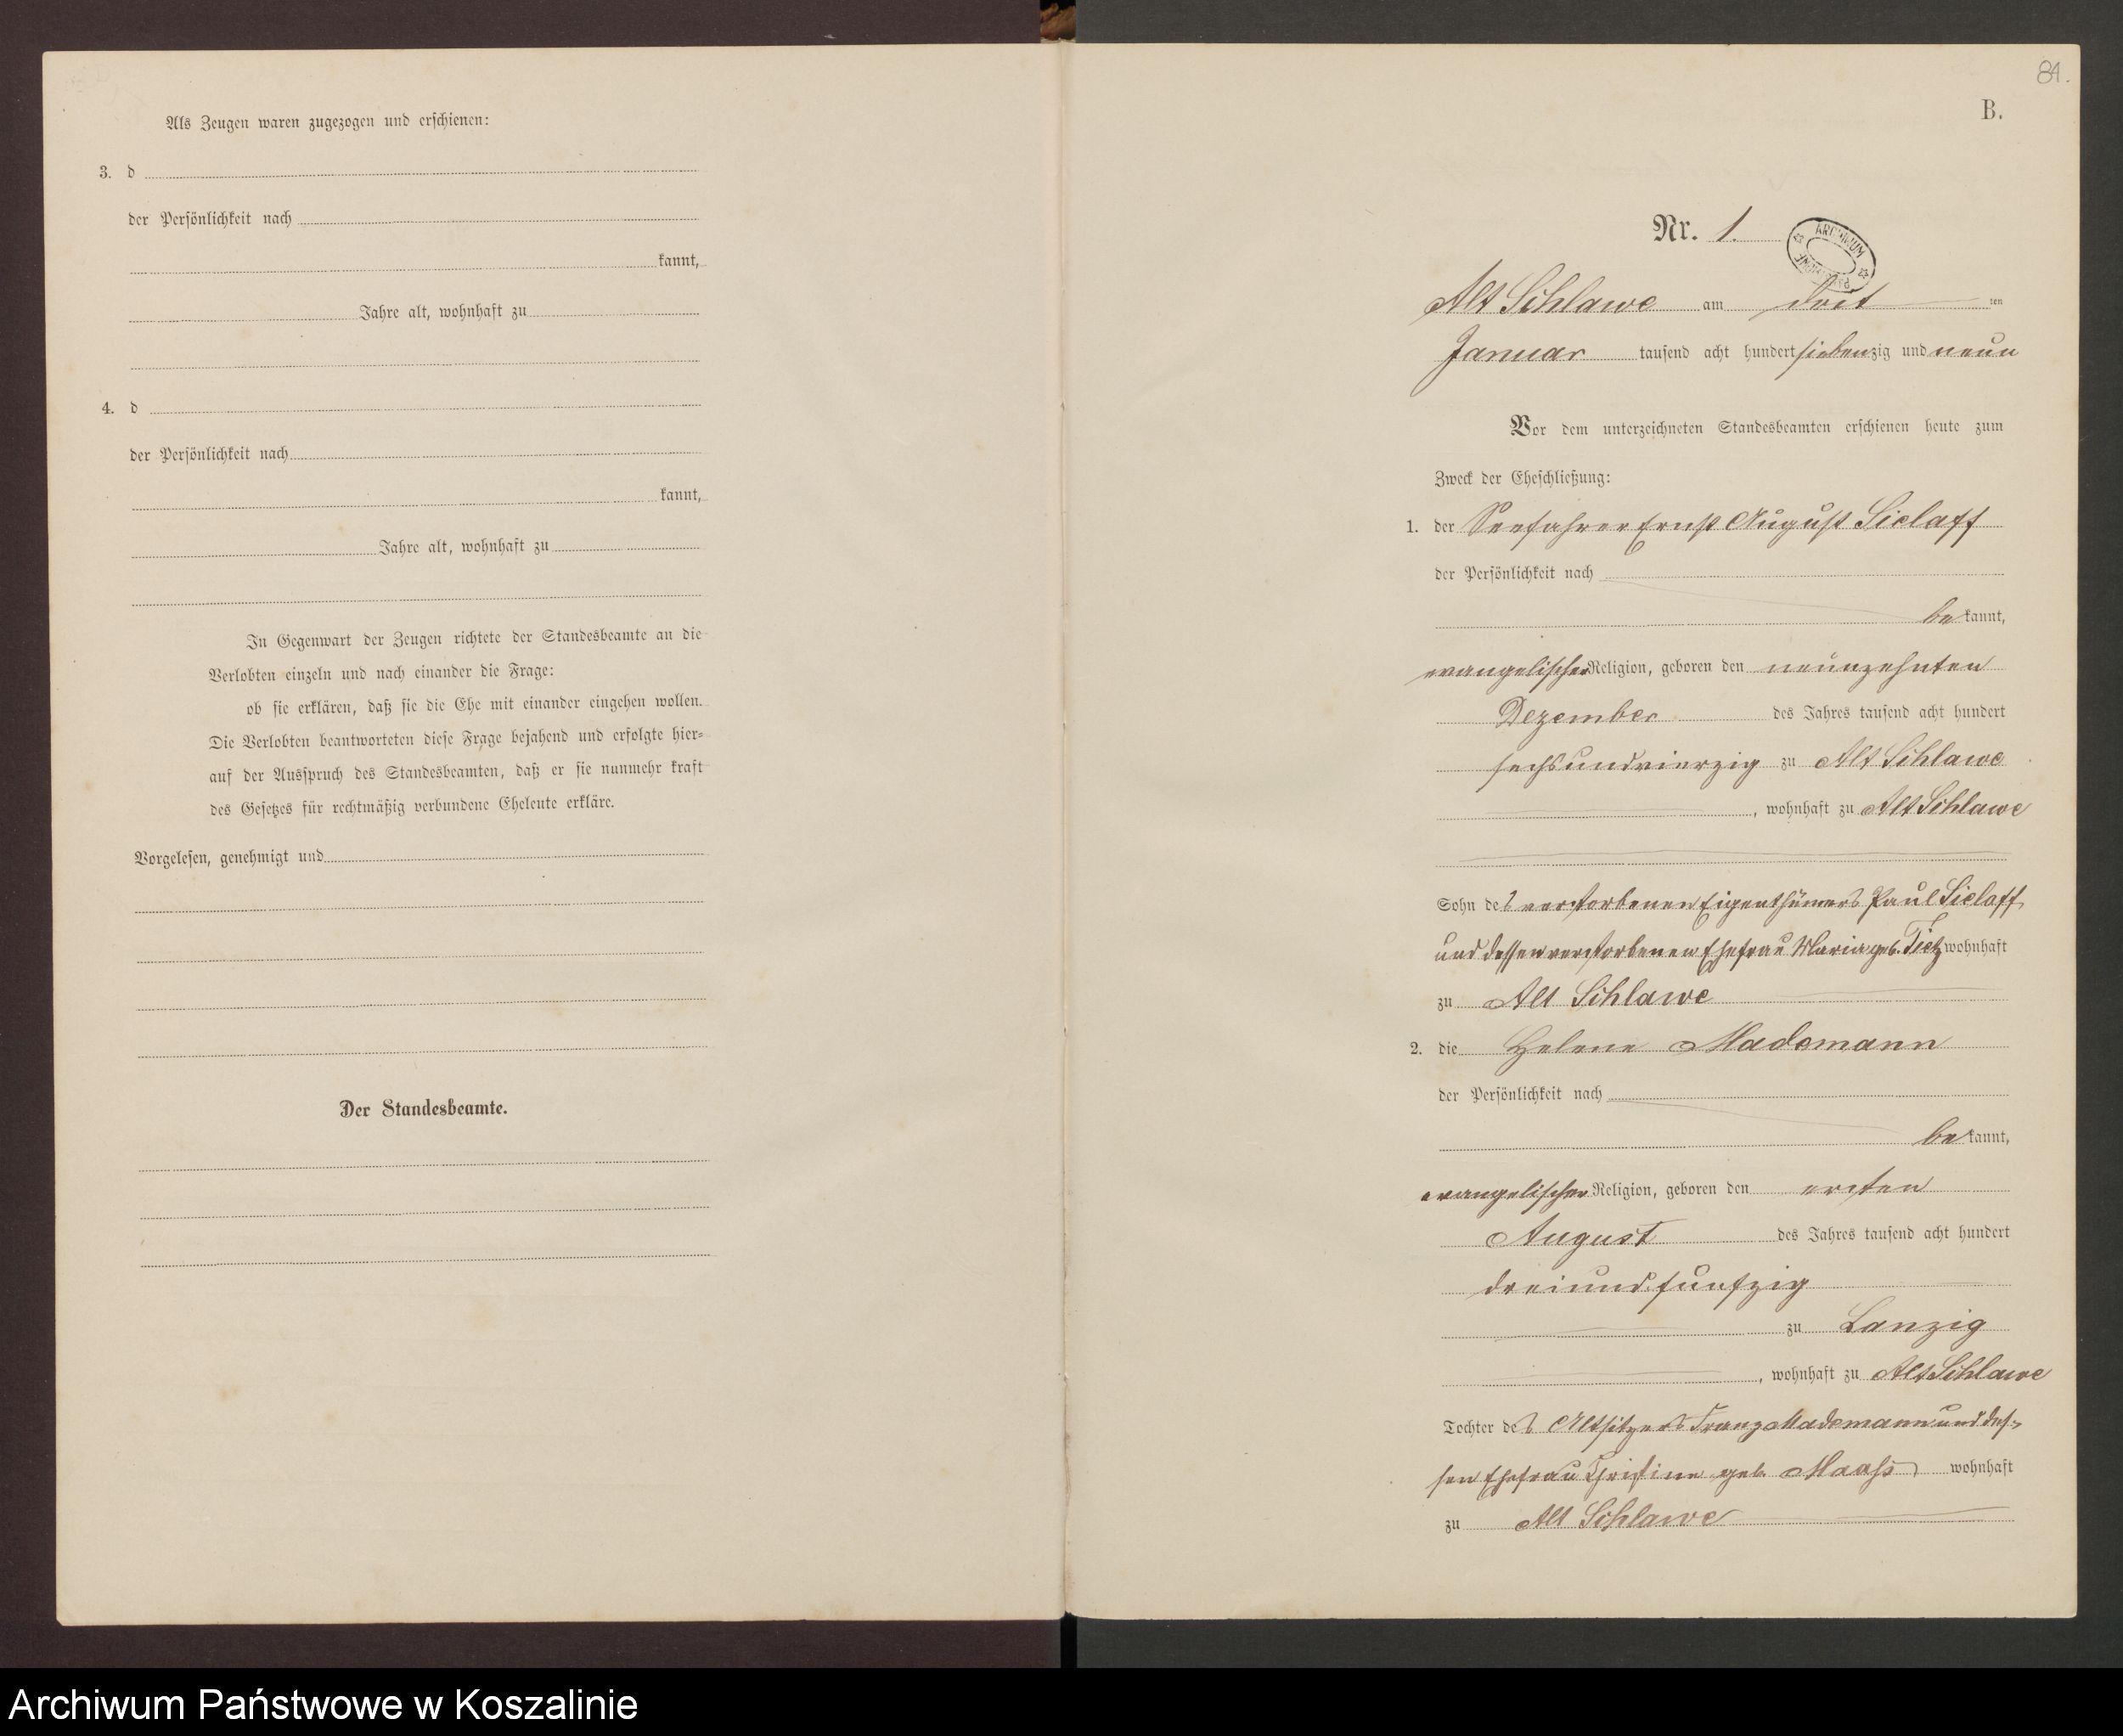 Als Zeugen waren zugezogen und erschienen:
3. d
der Persönlichkeit nach
kannt,
Jahre alt, wohnhaft zu
4. d
der Persönlichkeit nach
kannt,
Jahre alt, wohnhaft zu
In Gegenwart der Zeugen richtete der Standesbeamte an die
Verlobten einzeln und nach einander die Frage:
ob sie erklären, daß sie die Ehe mit einander eingehen wollen.
Die Verlobten beantworteten diese Frage bejahend und erfolgte hier=
auf der Ausspruch des Standesbeamten, daß er sie nunmehr kraft
des Gesetzes für rechtmäßig verbundene Eheleute erkläre.
Vorgelesen, genehmigt und
Der Standesbeamte.
81.
B.
Nr. 1.
ARCHIWUM
Alt Schlawe am drit ten
Januar tausend acht hundert siebenzig und neun
Vor dem unterzeichneten Standesbeamten erschienen heute zum
Zweck der Eheschließung:
1. der Seefahrer Ernst August Sielaff
der Persönlichkeit nach
be kannt,
evangelischer Religion, geboren den neunzehnten
Dezember des Jahres tausend acht hundert
sechsundvierzig zu Alt Schlawe
, wohnhaft zu Alt Schlawe
Sohn des verstorbenen Eigenthümers Paul Sielaff
und dessen verstorbenen Ehefrau Maria geb. Tietz wohnhaft
zu Alt Schlawe
2. die Helene Mademann
der Persönlichkeit nach
be kannt,
evangelischer Religion, geboren den ersten
August des Jahres tausend acht hundert
dreiundfunfzig
zu Lanzig
, wohnhaft zu Alt Schlawe
Tochter des Altsitzers Franz Mademann und des-
sen Ehefrau Christine geb. Maass wohnhaft
zu Alt Schlawe
Archiwum Państwowe w Koszalinie